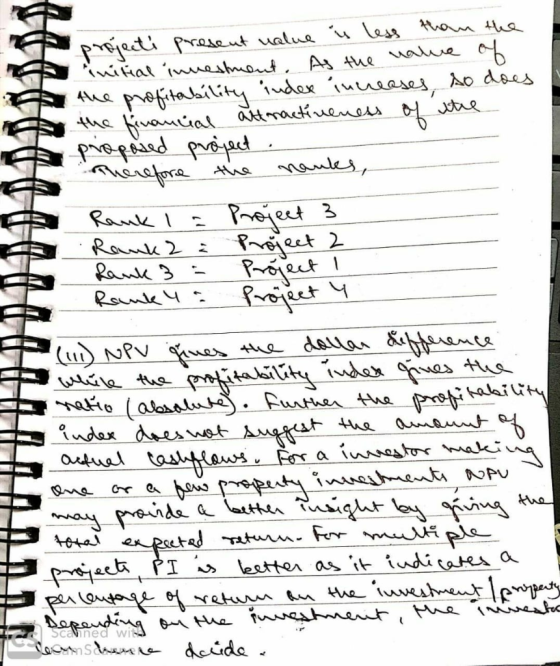 project's present value is less than the
initial investment. As the value of
the profitability index increases, so does
the financial attractiveness of the
proposed project.
Therefore the ranks,
Rank 1 = Project 3
Rank 2 = Project 2
Rank 3 = Project 1
Rank 4 = Project 4
(iii) NPV gives the dollar difference
while the profitability index gives the
ratio (absolute). Further the profitability
index does not suggest the amount of
actual cashflows. For a investor making
one or a few property investments, NPV
may provide a better insight by giving the
total expected return. For multiple
projects, PI is better as it indicates a
percentage of return on the investment/property
Depending on the investment, the investor
can decide.
CS Scanned with
CamScanner